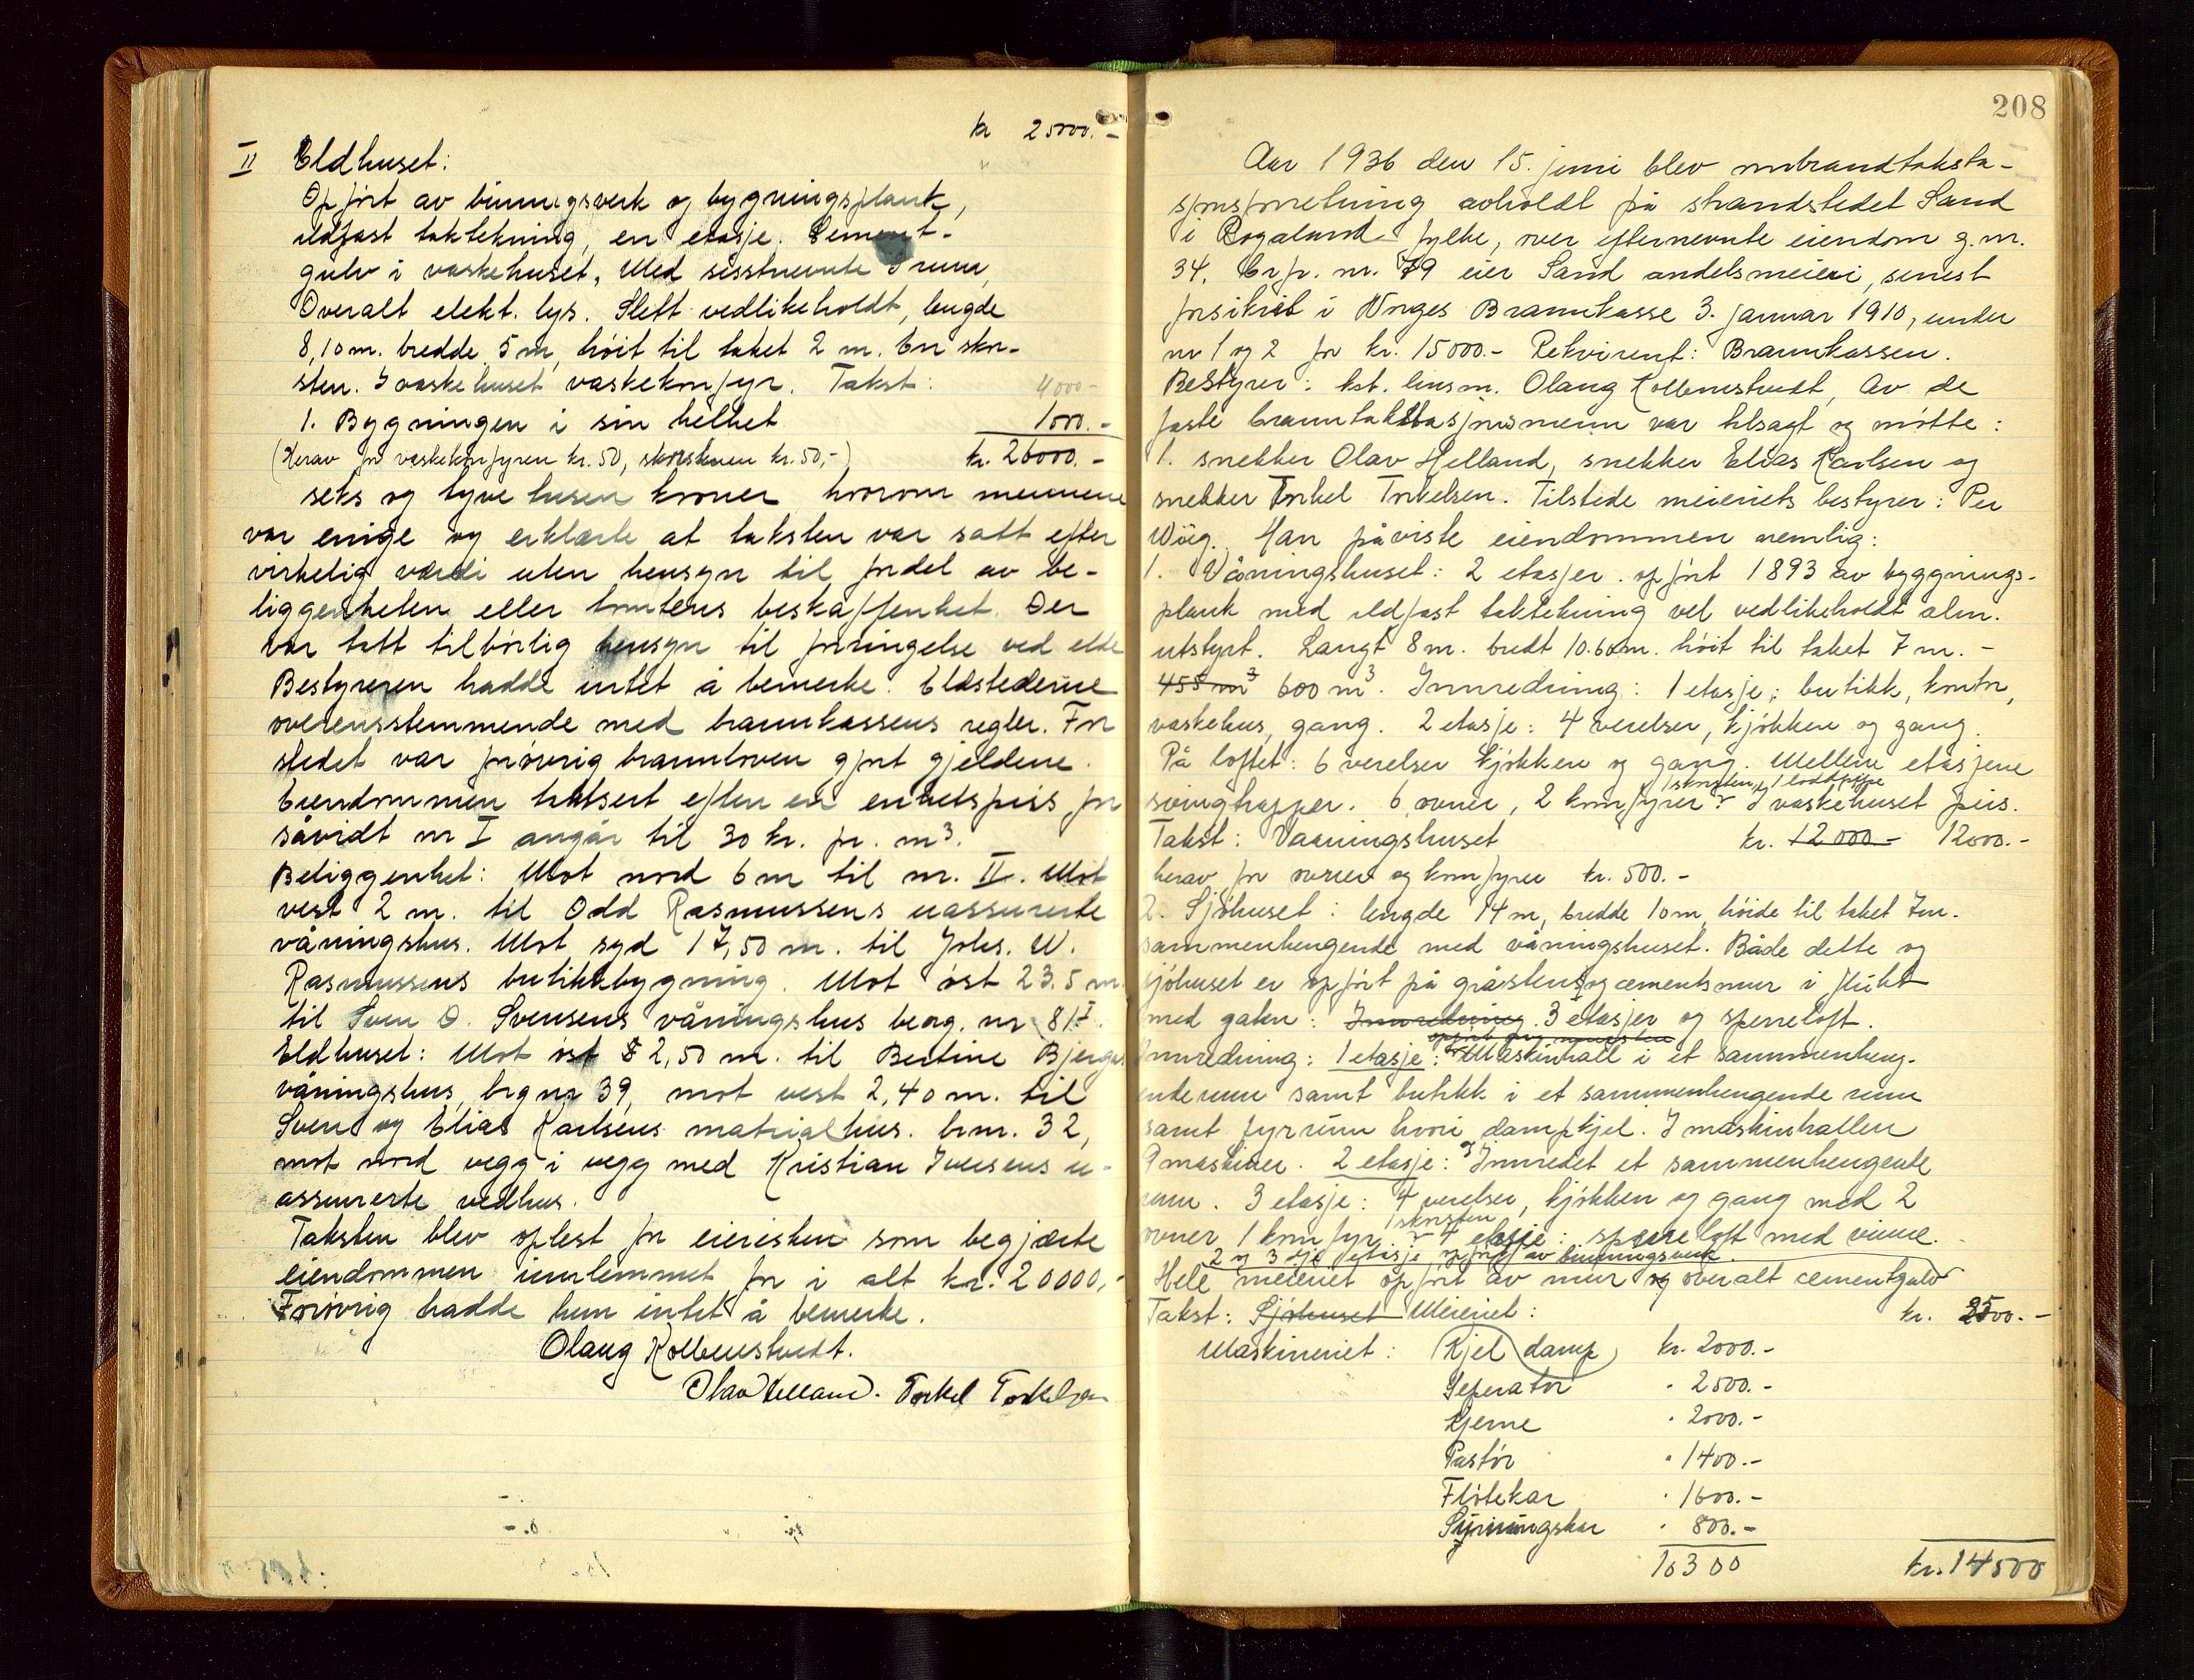 kr 25000.-
II Eldhuset:
Opført av binningsverk og bygningsplank,
ildfast taktekning, en etasje. Sement-
gulv i vaskehuset. Med sisstnevnte 3 rum,
Overalt elekt. lys. Slett vedlikeholdt, lengde
8,10 m. bredde 5 m, høit til taket 2 m. En skor-
sten. I vaskehuset vaskekomfyr. Takst:
4000-
1. Bygningen i sin helhet 1000.-
(Herav for vaskekomfyren kr. 50, skorstenen kr. 50,-) kr. 26000.-
seks og tyve tusen kroner hvorom mennene
var enige og erklærte at taksten var satt efter
virkelig værdi uten hensyn til fordel av be-
liggenheten eller tomtens beskaffenhet. Der
var tatt tilbørlig hensyn til forringelse ved elde
Bestyreren hadde intet å bemerke. Ildstederne
overensstemmende med brannkassens regler. For
stedet var forøvrig brannloven gjort gjeldene.
Eiendommen taksert efter en enhetspris for
såvidt nr I angår til 30 kr. pr. m³.
Beliggenhet: Mot nord 6 m til nr. II. Mot
vest 2 m. til Odd Rasmussens uassurerte
våningshus. Mot syd 17,50 m. til Johs. W.
Rasmussens butikkbygning. Mot øst 23.5 m
til Sven O. Svensens våningshus beorg. nr 81 I.
Eldhuset: Mot øst 2,50 m. til Bertine Bjerga
våningshus, brg nr 39, mot vest 2,40 m. til
Sven og Elias Karlsens matrialhus. br.nr. 32,
mot nord vegg i vegg med Kristian Iversens u-
assurerte vedhus.
Taksten blev oplest for eiersken som begjærte
eiendommen innlemmet for i alt kr. 20000,-
Forøvrig hadde hun intet å bemerke.
Olaug Kolbenstvedt.
Olav Helland. Torkel Torkelsen
208
Aar 1936 den 15. juni blev ombrandtaksta-
sjonsforretning avholdt på strandstedet Sand
i Rogaland fylke, over efternevnte eiendom g.nr.
34. br.nr. 79 eier Sand andelsmeieri, senest
forsikret i Norges Brannkasse 3. januar 1910, under
nr 1 og 2 for kr. 15000.- Rekvirent: Brannkassen.
Bestyrer: kst. lensm. Olaug Kolbenstvedt, Av de
faste branntakstasjonsmenn var tilsagt og møtte:
1. snekker Olav Helland, snekker Elias Karlsen og
snekker Torkel Torkelsen. Tilstede meieriets bestyrer: Per
Wiig. Han påviste eiendommen nemlig:
1. Våningshuset: 2 etasjer. opført 1893 av byggnings-
plank med ildfast taktekning vel vedlikeholdt alm.
utstyrt. Langt 8 m. bredt 10.60 m. høit til taket 7 m. -
455 m³ 600 m³. Innredning: 1 etasje: butikk, kontor,
vaskehus, gang. 2 etasje: 4 værelser, kjøkken og gang.
På loftet: 6 verelser kjøkken og gang. Mellem etasjene
1 skorsten, 1 loddpipe
svingtrapper. 6 ovner, 2 komfyrer. I vaskehuset peis.
Takst: Vaaningshuset kr. 12000- 12000.-
herav for ovner og komfyrer kr. 500.-
2. Sjøhuset: lengde 14 m, bredde 10 m, høide til taket 7 m.
sammenhengende med våningshuset. Både dette og
sjøhuset er opført på gråstens og cementsmur i flukt
med gaten: Innredning. 3 etasjer og sperreloft.
Innredning: 1 etasje: Maskinhall i et sammenheng-
ende rum samt butikk i et sammenhengende rum
samt fyrrum hvori dampkjel. I maskinhallen
9 maskiner. 2 etasje: Innredet et sammenhengende
rum. 3 etasje: 4 verelser, kjøkken og gang med 2
1 skorsten
ovner 1 komfyr. 4 etasje: sperreloft med vinne.
2 og 3 dje etasje opført av binningsverk.
Hele meieriet opført av mur og overalt cementgulv
Takst: Sjøhuset Meieriet: kr. 2500.-
Maskineriet: Kjel (damp) kr. 2000.-
Seperator " 2500.-
Kjerne " 2000.-
Pastør " 1400.-
Fløtekar " 1600.-
Syrningskar " 800.-
10300 kr. 14500